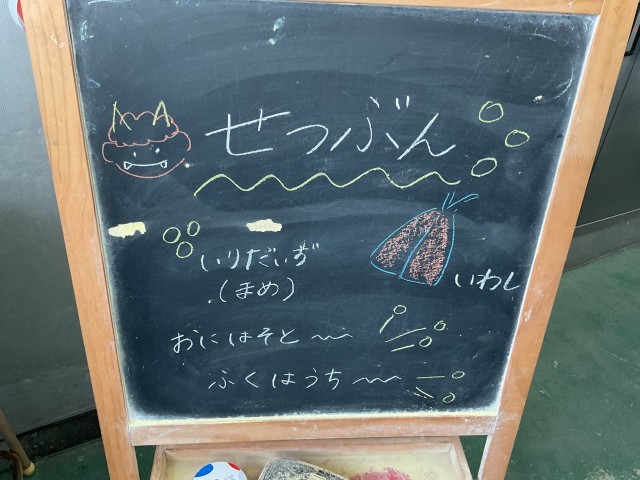 せつぶん
いりだいず
(まめ)
いわし
おにはそと〜
ふくはうち〜